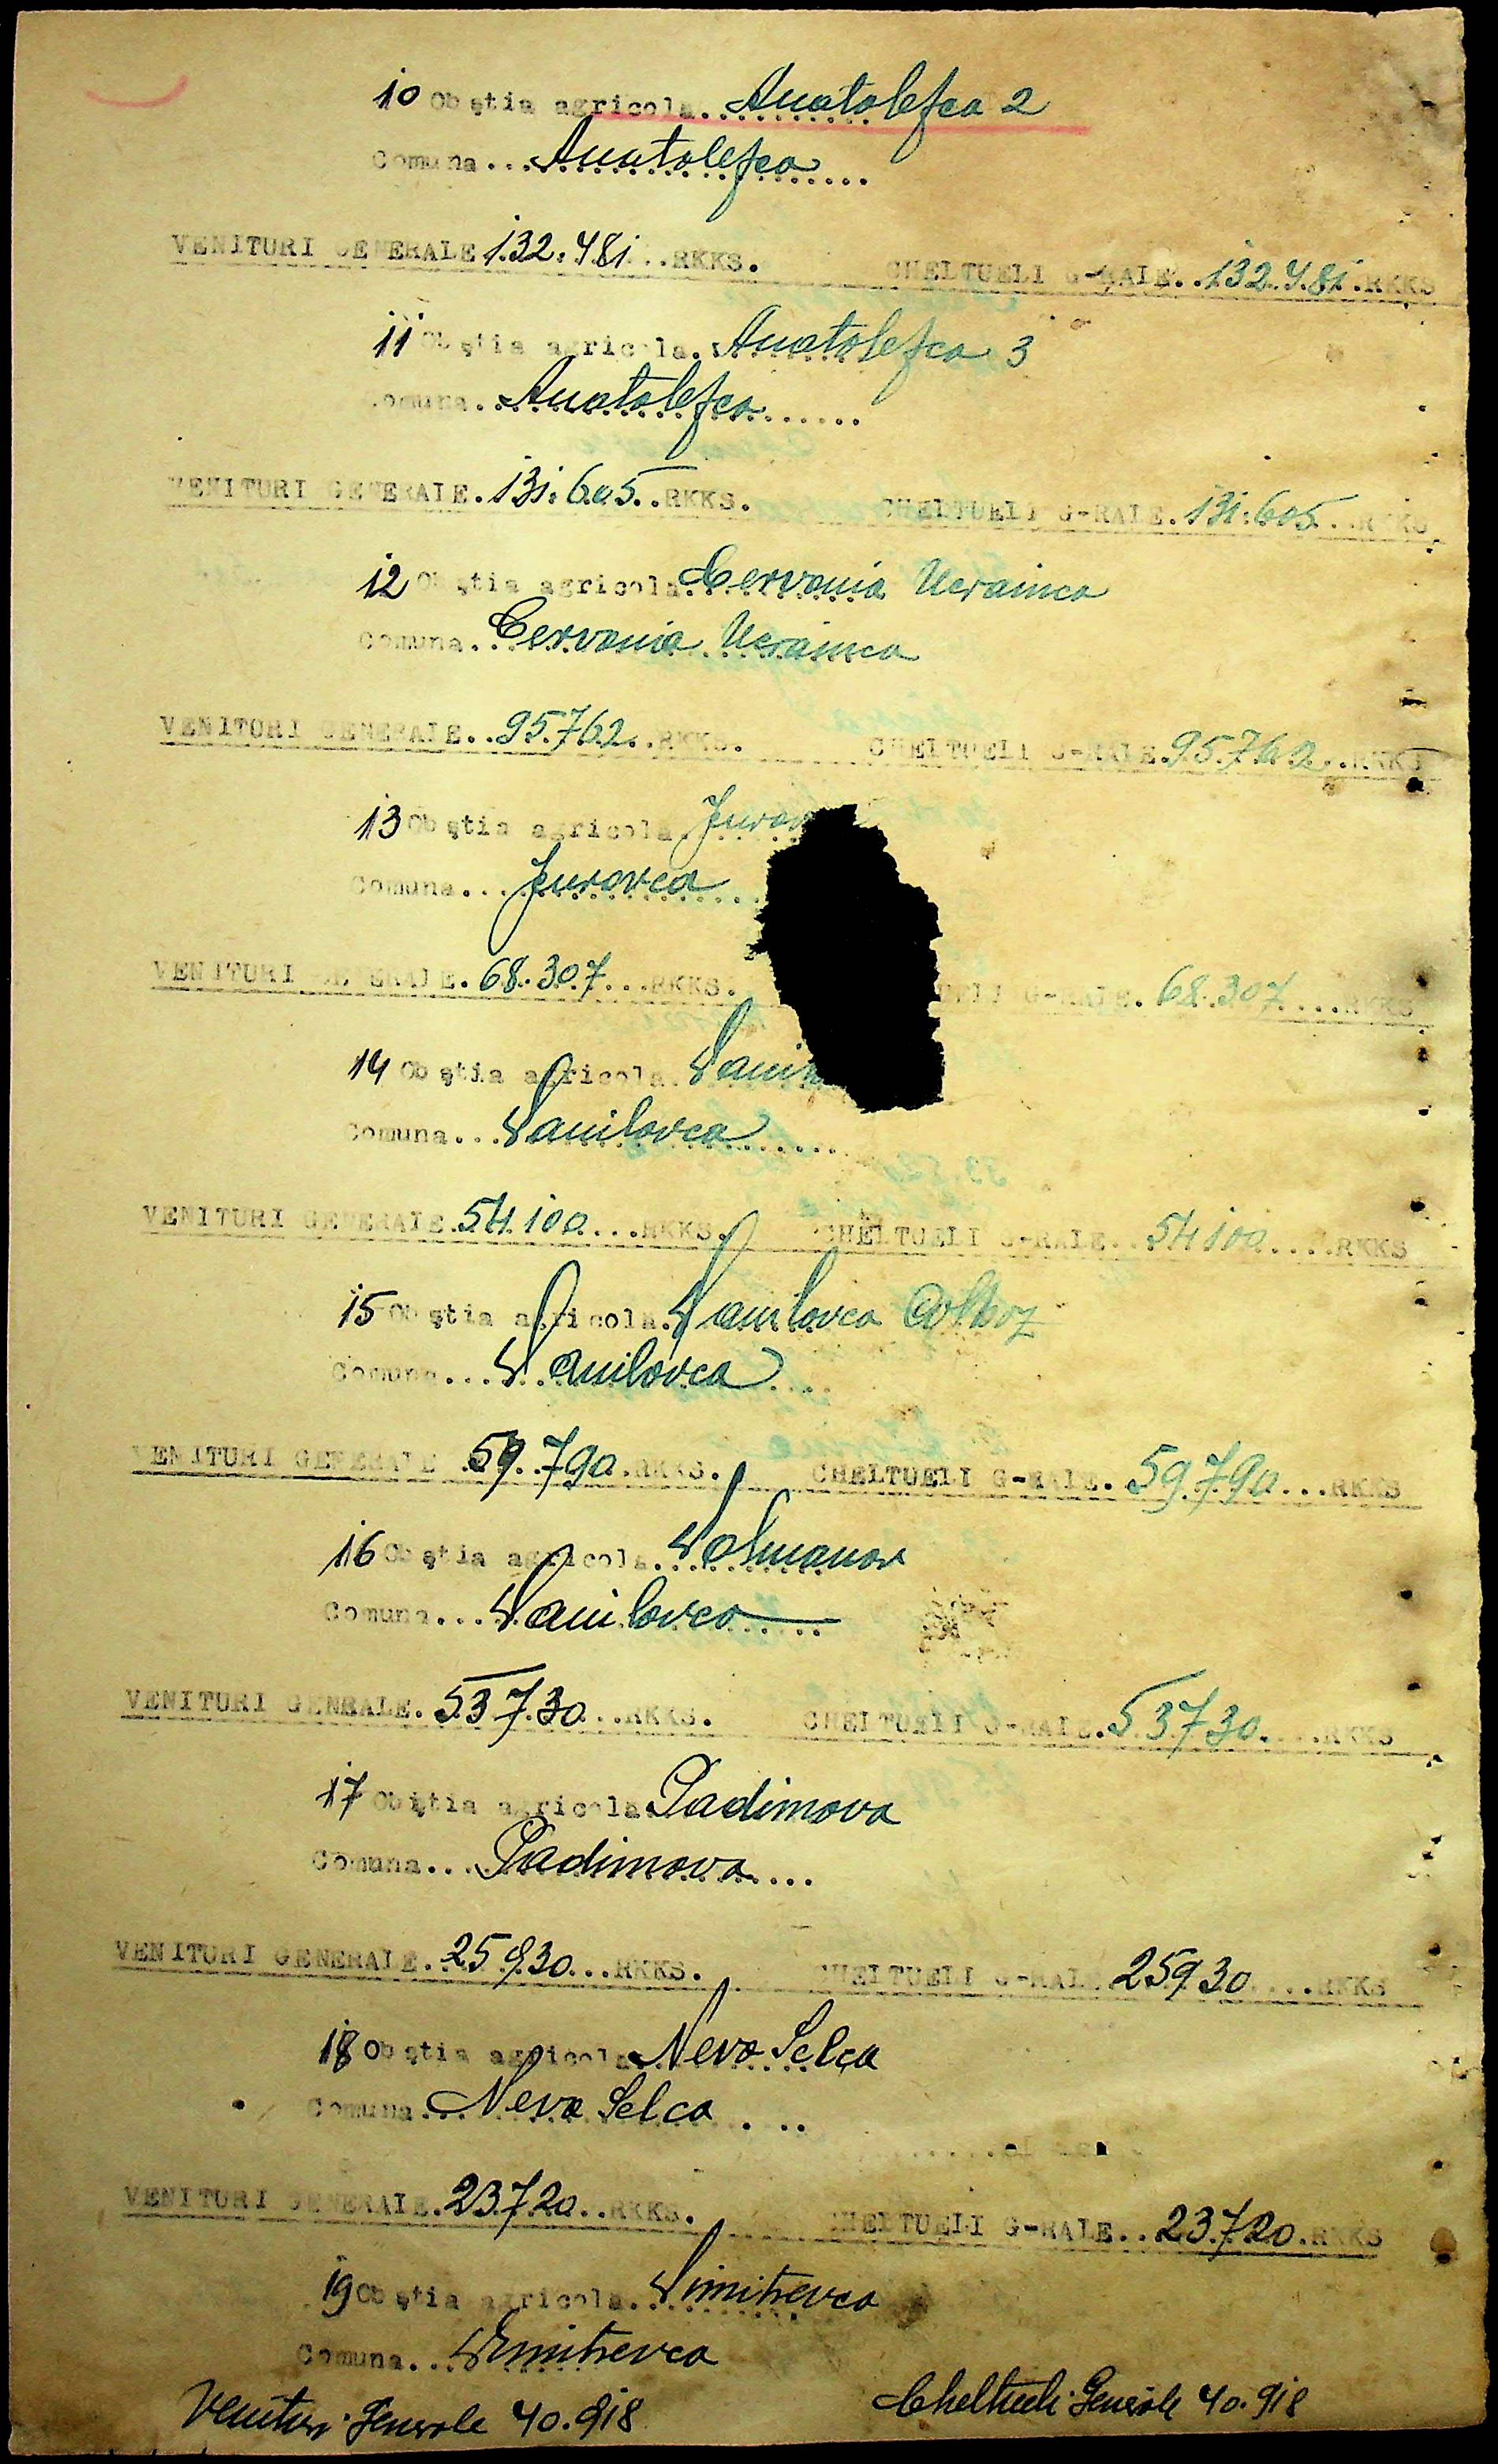 10 Obștia agricola. Anatolefca 2
Comuna... Anatolefca
VENITURI GENERALE 132.481..RKKS. CHELTUELI G-RALE..132.481.RKKS
11 Obștia agricola. Anatolefca 3
Comuna. Anatolefca
VENITURI GENERALE.131.605..RKKS. CHELTUELI G-RALE.131.605...RKKS
12 Obștia agricola. Cervonia Ucrainca
Comuna.. Cervonia Ucrainca
VENITURI GENERALE..95.762..RKKS. CHELTUELI G-RALE.95.762..RKKS
13 Obștia agricola. Jurov
Comuna... Jurovca
VENITURI GENERALE.68.307...RKKS. UELI G-RALE.68.307....RKKS
14 Obștia agricola. Dani
Comuna... Danilovca
VENITURI GENERALE.54.100...RKKS. CHELTUELI G-RALE..54100....RKKS
15 Obștia agricola. Danilovca Colhoz
Comuna... Danilovca
VENITURI GENERALE 59.790.RKKS. CHELTUELI G-RALE.59.790...RKKS
16 Obștia agricola. Dolmanov
Comuna... Danilovca
VENITURI GENRALE.53730...RKKS. CHELTUELI G-RALE.53730....RKKS
17 Obștia agricola. Padimova
Comuna... Padimova
VENITURI GENERALE.25930...RKKS. CHELTUELI G-RALE 25930....RKKS
18 Obștia agricola. Nevo Selca
Comuna... Nevo Selca
VENITURI GENERALE.23720..RKKS. CHELTUELI G-RALE..23720.RKKS
19 Obștia agricola. Dimitrevca
Comuna.. Dimitrevca
Venituri Generale 40.918 Cheltueli Generale 40.918